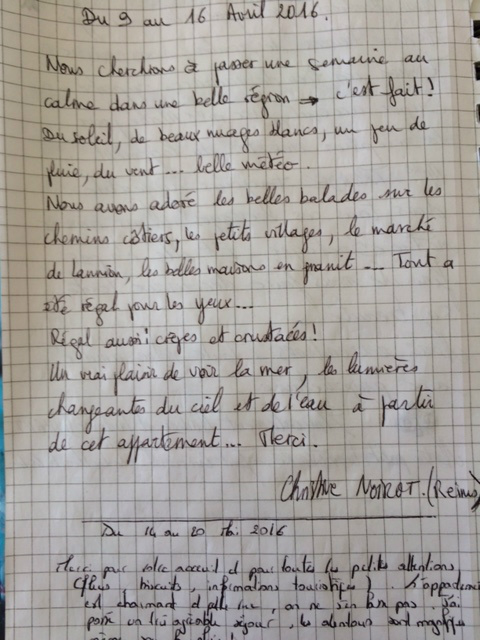 Du 9 au 16 Avril 2016.
Nous cherchions à passer une semaine au
calme dans une belle région → c'est fait !
Du soleil, de beaux nuages blancs, un peu de
pluie, du vent... belle météo.
Nous avons adoré les belles balades sur les
chemins côtiers, les petits villages, le marché
de Lannion, les belles maisons en granit... Tout a
été régal pour les yeux...
Régal aussi : crèpes et crustacés !
Un vrai plaisir de voir la mer, les lumières
changeantes du ciel et de l'eau à partir
de cet appartement... Merci.
Christine NOIROT. (Reims)
Du 14 au 20 Mai 2016
Merci pour votre accueil et pour toutes les petites attentions
biscuits, informations touristiques). L'appartement
est charmant
agréable séjour, les alentours sont magnifiques